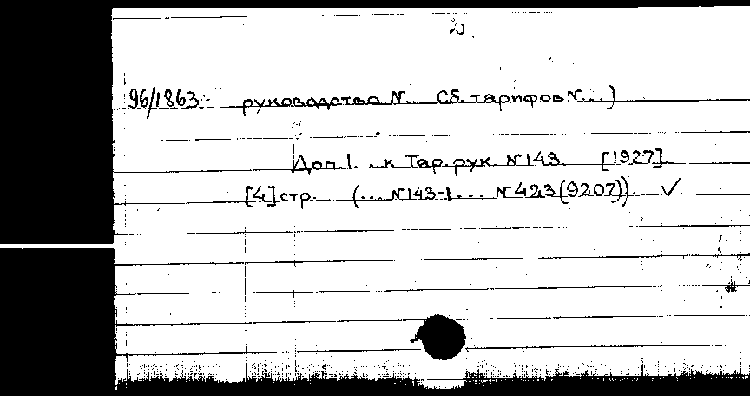 2.
96/1863 руководства N... Сб. тарифов N...)
Доп. 1... к Тар. рук. N 143. [1927].
[4] стр. (... N 143-1... N 423 (9207)). ✓